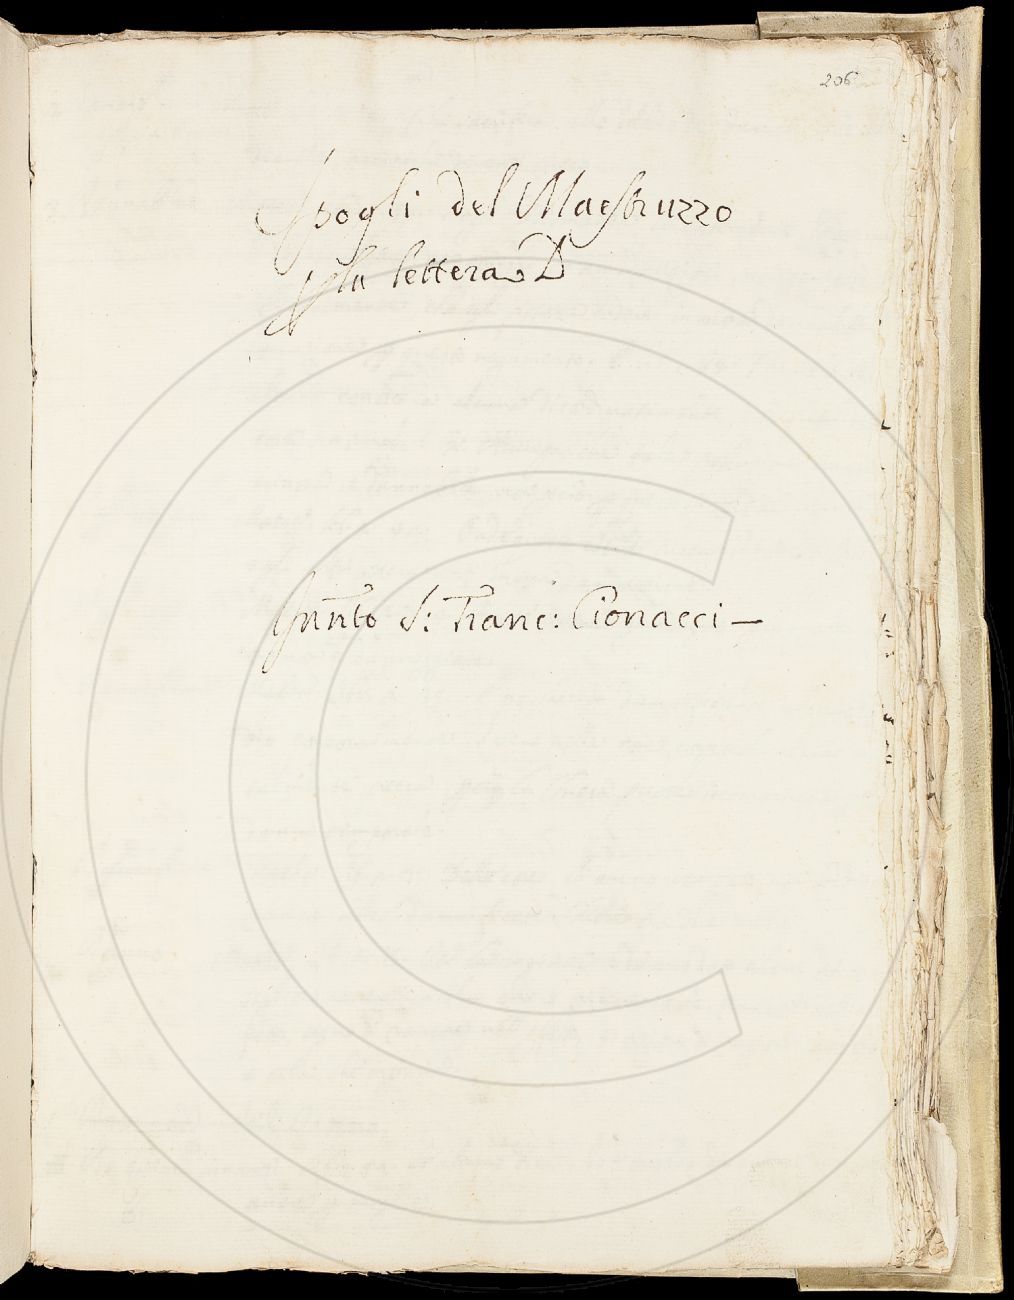 206
Spogli del Maestruzzo
p la lettera D
Innto S: Franc: Cionacci —